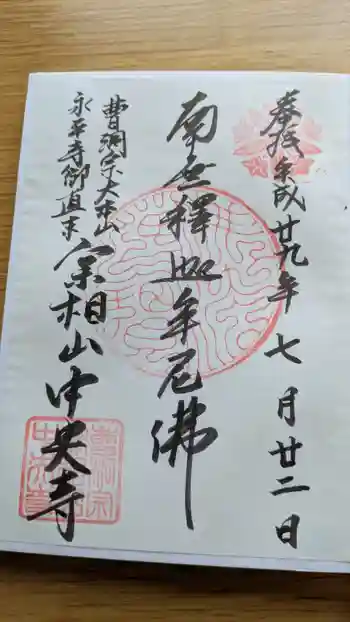 奉拝 平成廿九年七月廿二日
南無釋迦牟尼佛
曹洞宗大本山
永平寺御直末
宗相山中央寺